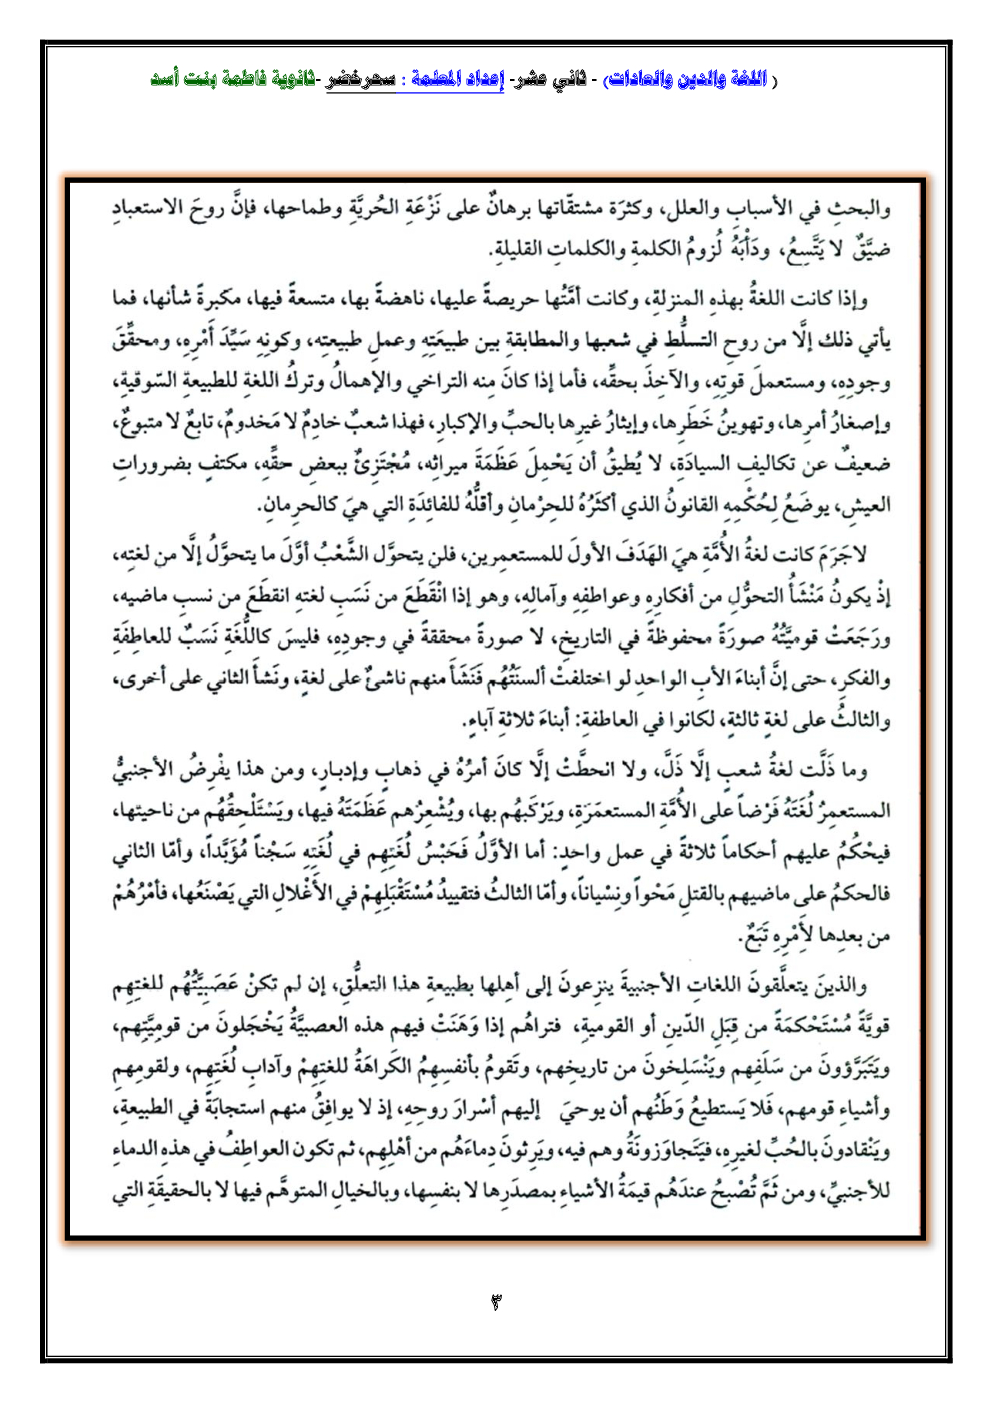 ( اللغة والدين والعادات) - ثاني عشر- إعداد المعلمة : سحرخضر -ثانوية فاطمة بنت أسد
والبحثِ في الأسبابِ والعلل، وكثرَة مشتقّاتها برهانٌ على نَزْعَةِ الحُريَّةِ وطماحها، فإنَّ روحَ الاستعبادِ
ضيَّقٌ لا يَتَّسِعُ، ودَأْبَهُ لُزومُ الكلمةِ والكلماتِ القليلةِ.
وإذا كانت اللغةُ بهذهِ المنزلةِ، وكانت أمَّتُها حريصةً عليها، ناهضةً بها، متسعةً فيها، مكبرةً شأنها، فما
يأتي ذلك إلَّا من روحِ التسلُّطِ في شعبها والمطابقةِ بين طبيعَتِهِ وعملِ طبيعتِه، وكونِهِ سَيِّدَ أَمْرِهِ، ومحقِّقَ
وجودِهِ، ومستعملَ قوتِهِ، والآخِذَ بحقِّه، فأما إذا كانَ منه التراخي والإهمالُ وتركُ اللغةِ للطبيعةِ السّوقيةِ،
وإصغارُ أمرِها، وتهوينُ خَطَرِها، وإيثارُ غيرِها بالحبِّ والإكبارِ، فهذا شعبٌ خادِمٌ لا مَخدومٌ، تابعٌ لا متبوعٌ،
ضعيفٌ عن تكاليفِ السيادَةِ، لا يُطيقُ أن يَحْمِلَ عَظَمَةَ ميراثِه، مُجْتَزِئٌ ببعضِ حقِّهِ، مكتفٍ بضروراتِ
العيشِ، يوضَعُ لِحُكْمِهِ القانونُ الذي أكثَرُهُ للحِرْمانِ وأقلُّهُ للفائِدَةِ التي هيَ كالحرِمانِ.
لاجَرَمَ كانت لغةُ الأُمَّةِ هيَ الهَدَفَ الأولَ للمستعمرين، فلن يتحوَّل الشَّعْبُ أوَّلَ ما يتحوَّلُ إلَّا من لغتِه،
إذْ يكونُ مَنْشَأُ التحوُّلِ من أفكارِهِ وعواطفِهِ وآمالِهِ، وهو إذا انْقَطَعَ من نَسَبِ لغتهِ انقطَعَ من نسبِ ماضيه،
ورَجَعَتْ قوميَّتُهُ صورَةً محفوظةً في التاريخِ، لا صورةً محققةً في وجودِهِ، فليسَ كاللُّغَةِ نَسَبٌ للعاطِفَةِ
والفكرِ، حتى إنَّ أبناءَ الأبِ الواحدِ لو اختلفتْ ألسنَتُهُم فَنَشَأَ منهم ناشئٌ على لغةٍ، ونَشأَ الثاني على أخرى،
والثالثُ على لغةٍ ثالثةٍ، لكانوا في العاطفةِ: أبناءَ ثلاثةِ آباءٍ.
وما ذَلَّت لغةُ شعبٍ إلَّا ذَلَّ، ولا انحطَّتْ إلَّا كانَ أمرُهُ في ذهابٍ وإدبارٍ، ومن هذا يفْرِضُ الأجنبيُّ
المستعمِرُ لُغَتَهُ فَرْضاً على الأُمَّةِ المستعمَرَةِ، ويَرْكَبُهُم بها، ويُشْعِرُهم عَظَمَتَهُ فيها، ويَسْتَلْحِقُهُم من ناحيتِها،
فيحْكُمُ عليهم أحكاماً ثلاثةً في عمل واحدٍ: أما الأوَّلُ فَحَبْسُ لُغَتِهم في لُغَتِهِ سَجْناً مُؤَبَّداً، وأمّا الثاني
فالحكمُ على ماضيهم بالقتلِ مَحْواً ونِسْياناً، وأمّا الثالثُ فتقييدُ مُسْتَقْبَلِهِمْ في الأَغْلالِ التي يَصْنَعُها، فأمْرُهُمْ
من بعدِها لأَمْرِهِ تَبَعٌ.
والذينَ يتعلَّقونَ اللغاتِ الأجنبيةَ ينزعونَ إلى أهلِها بطبيعةِ هذا التعلُّقِ، إن لم تكنْ عَصَبِيَّتُهُم للغتِهِم
قويَّةً مُسْتَحْكمَةً من قِبَلِ الدّينِ أو القوميةِ، فتراهُم إذا وَهَنَتْ فيهم هذه العصبيَّةُ يَخْجَلونَ من قوميَّتِهم،
ويَتَبَرَّؤونَ من سَلَفِهم ويَنْسَلِخونَ من تاريخِهم، وتَقومُ بأنفسِهِمُ الكَراهَةُ للغتِهِمْ وآدابِ لُغَتِهِم، ولقومِهِم
وأشياءِ قومِهم، فَلا يَستطيعُ وَطَنُهم أن يوحيَ إليهم أسْرارَ روحِهِ، إذ لا يوافِقُ منهم استجابَةً في الطبيعةِ،
ويَنْقادونَ بالحُبِّ لغيرِهِ، فيَتَجاوَزونَهُ وهم فيه، ويَرِثونَ دِماءَهُم من أهْلِهِم، ثم تكون العواطِفُ في هذه الدماءِ
للأجنبيِّ، ومن ثَمَّ تُصْبِحُ عندَهُم قيمَةُ الأشياءِ بمصدَرِها لا بنفسِها، وبالخيالِ المتوهَّم فيها لا بالحقيقَةِ التي
٣